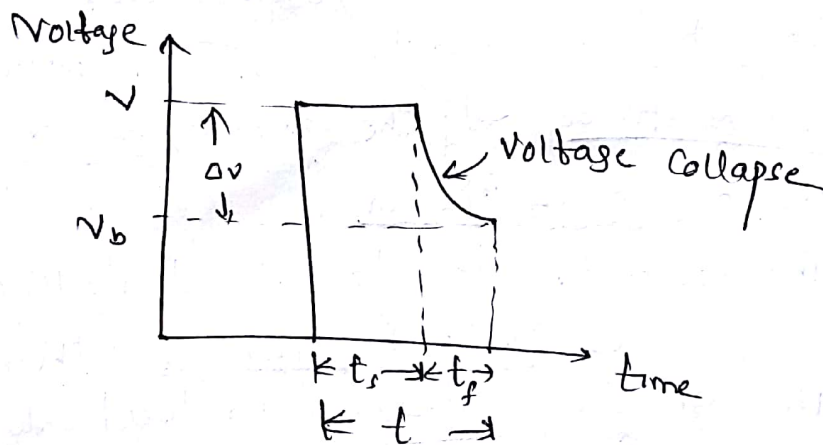 Voltage
V
ΔV
Voltage Collapse
V_b
t_s t_f
time
t